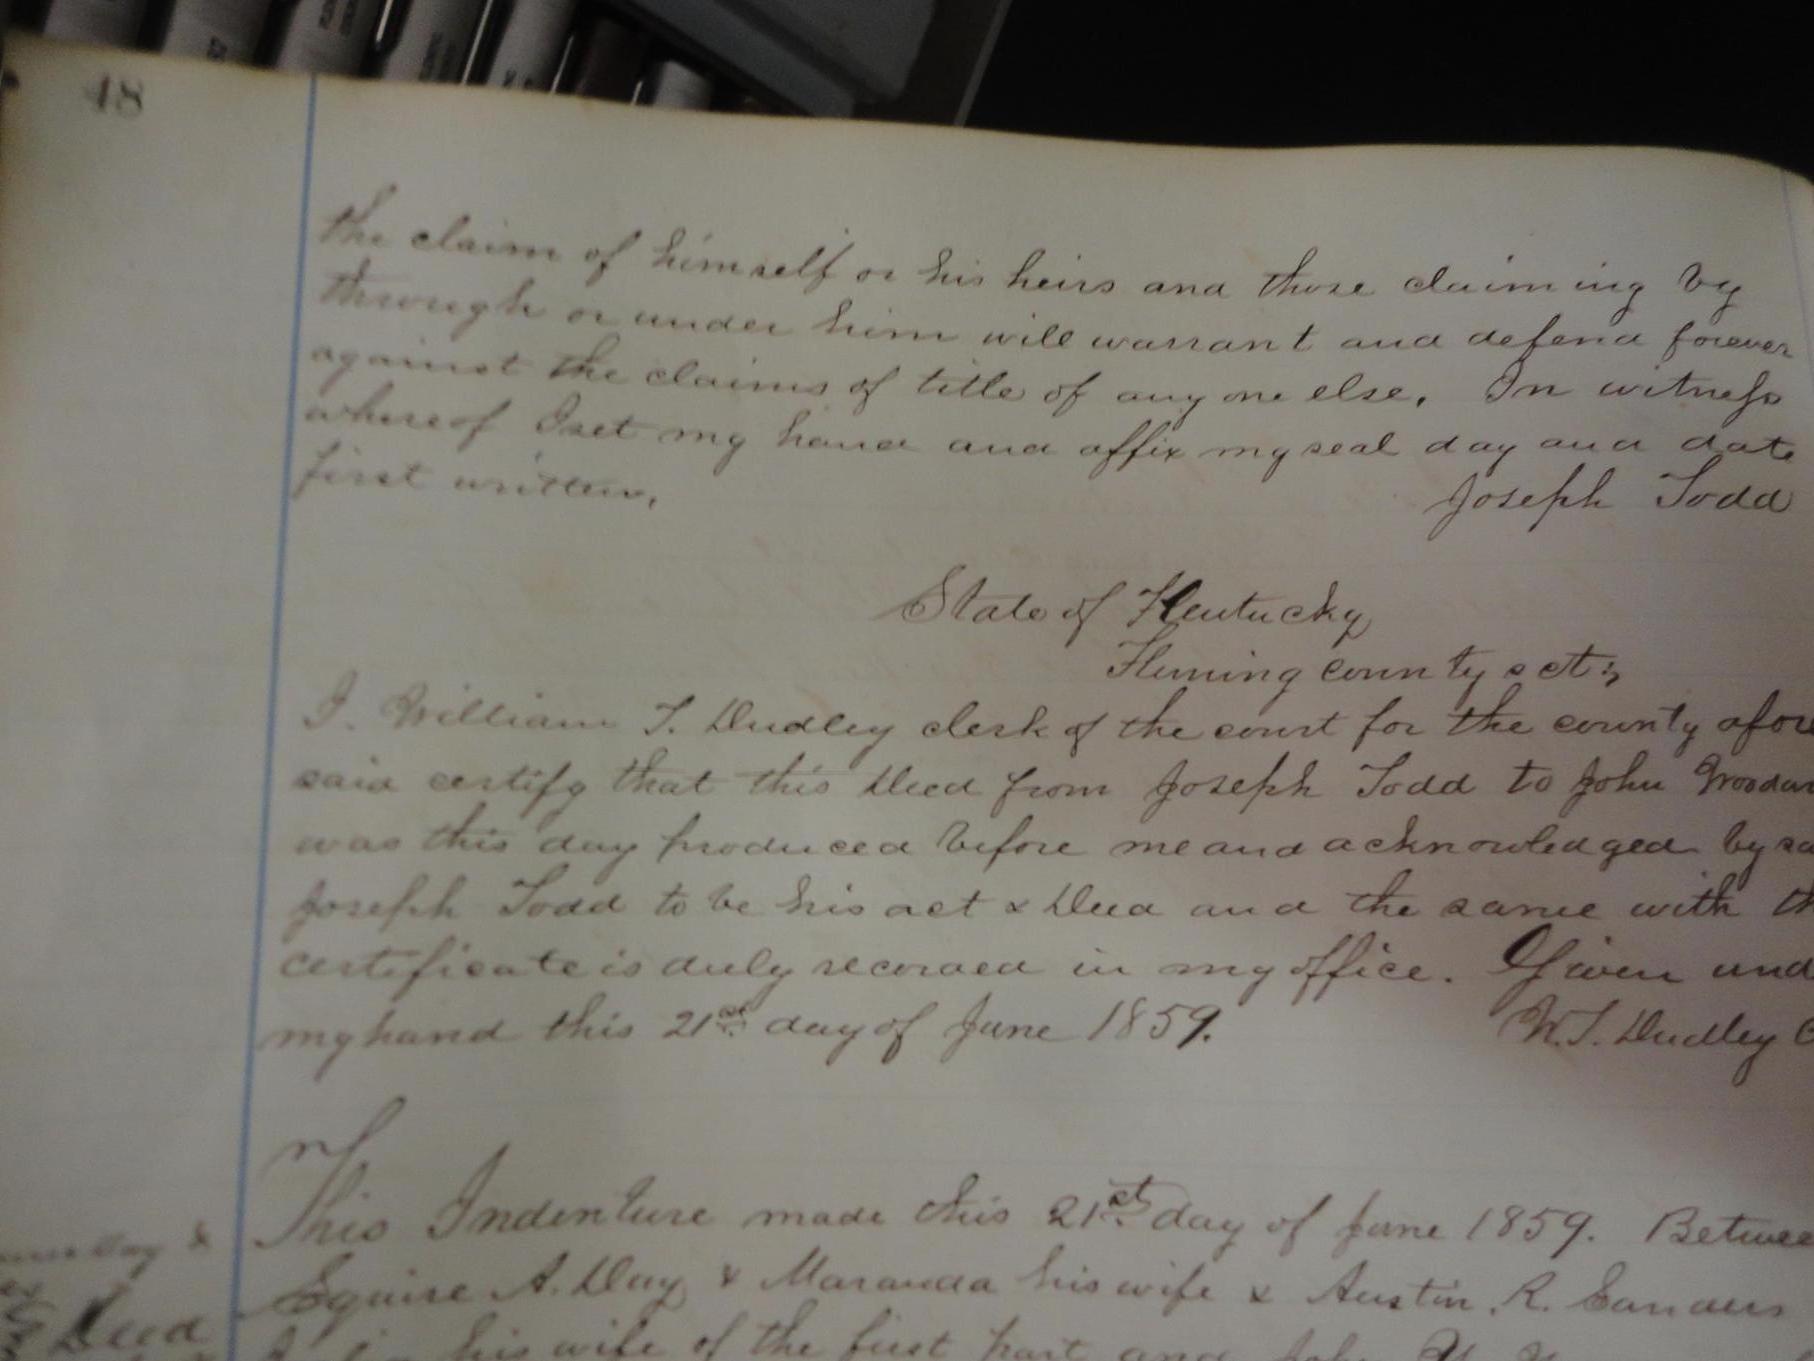 48
the claim of himself or his heirs and those claiming by
through or under him will warrant and defend forever
against the claims of title of any one else. In witness
whereof I set my hand and affix my seal day and date
first written.
Joseph Todd
State of Kentucky
Fleming county sct:
I. William T. Dudley clerk of the court for the county afore
said certify that this Deed from Joseph Todd to John
was this day produced before me and acknowledged by sa
Joseph Todd to be his act & Deed and the same with th
certificate is duly recorded in my office. Given und
my hand this 21st day of June 1859.
W.T. Dudley C
This Indenture made this 21st day of June 1859. Betwee
Squire A. Day & Maranda his wife & Austin. R. Sanders
Deed
his wife of the first part and John